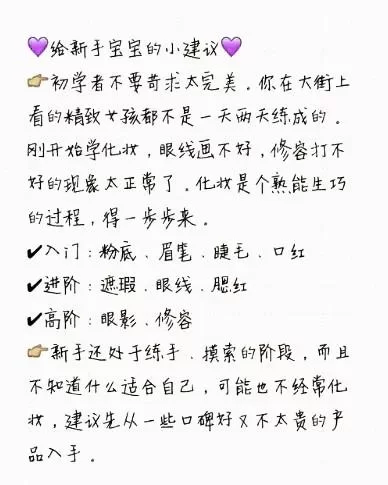 💜给新手宝宝的小建议💜
👉初学者不要苛求太完美。你在大街上
看的精致女孩都不是一天两天练成的。
刚开始学化妆，眼线画不好，修容打不
好的现象太正常了。化妆是个熟能生巧
的过程，得一步步来。
✔入门：粉底、眉笔、睫毛、口红
✔进阶：遮瑕、眼线、腮红
✔高阶：眼影、修容
👉新手还处于练手、摸索的阶段，而且
不知道什么适合自己，可能也不经常化
妆，建议先从一些口碑好又不太贵的产
品入手。